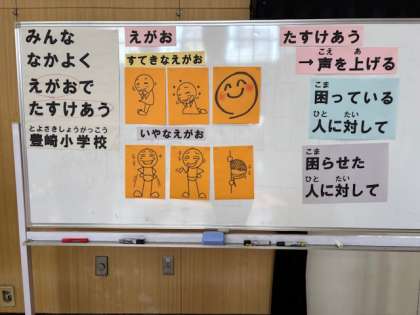 みんな
なかよく
えがおで
たすけあう
とよさきしょうがっこう
豊崎小学校
えがお
すてきなえがお
いやなえがお
たすけあう
こえ あ
→声を上げる
こま
困っている
ひと たい
人に対して
こま
困らせた
ひと たい
人に対して